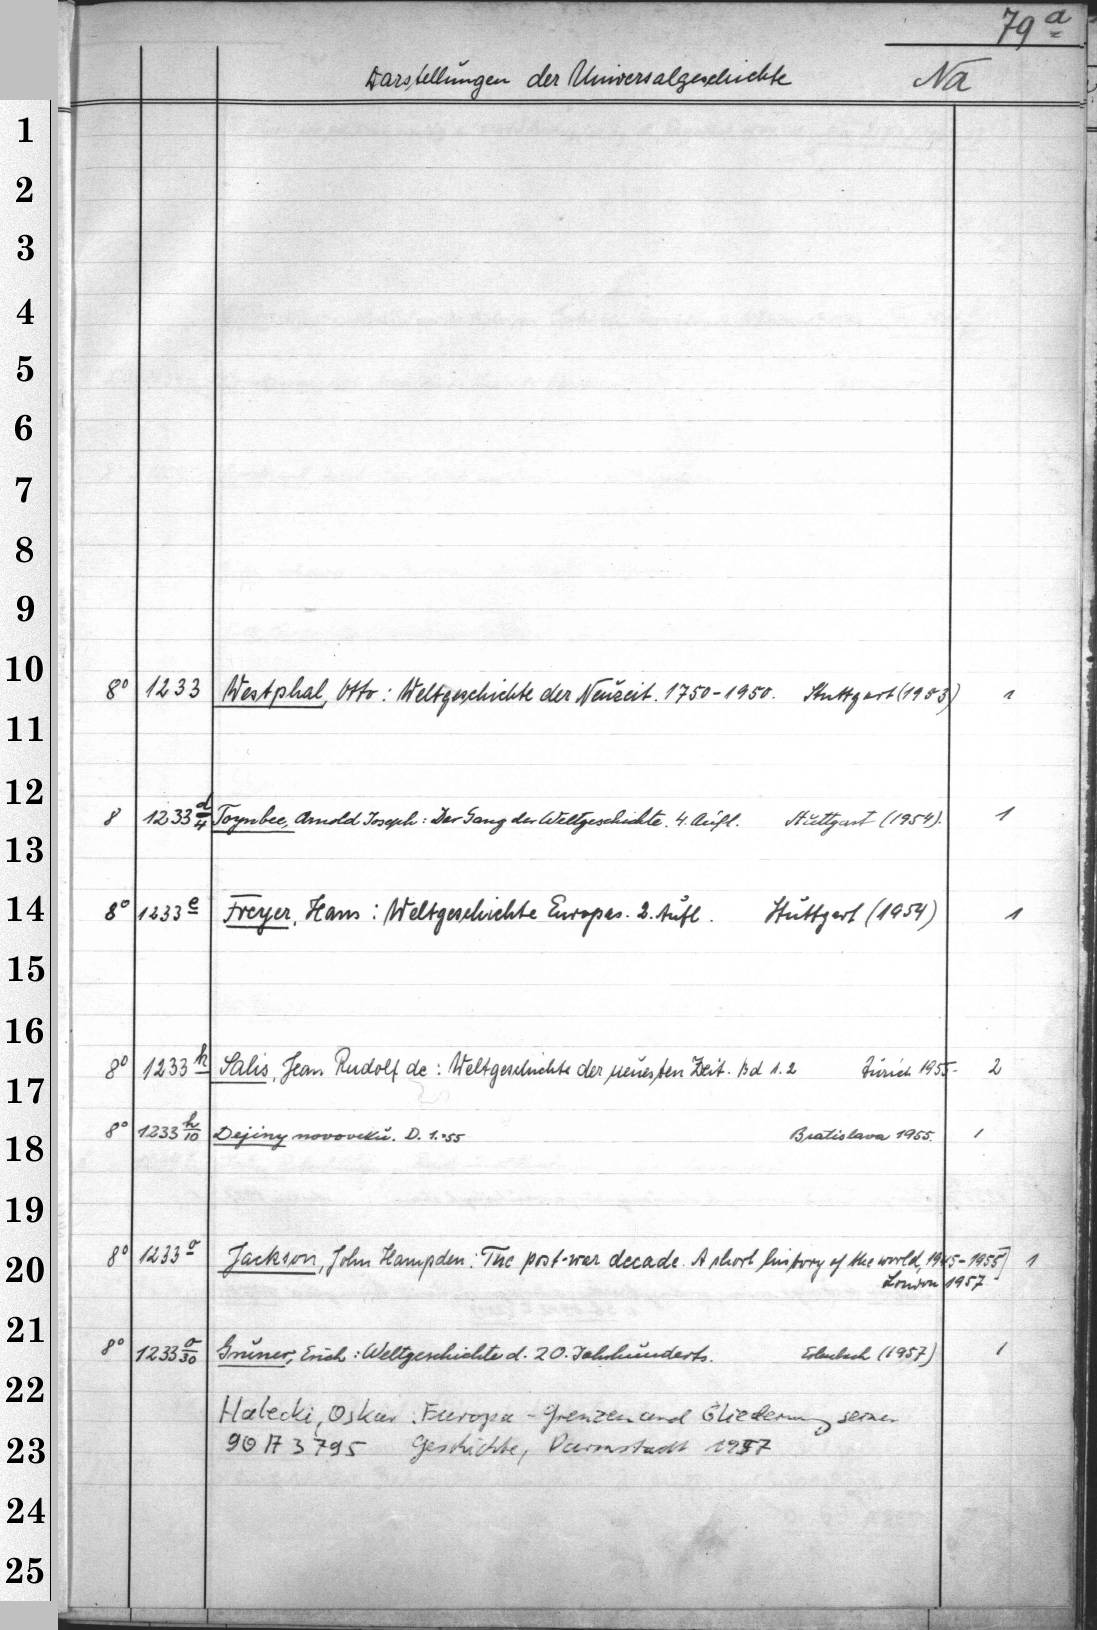 79 a
Darstellungen der Universalgeschichte Na
1
2
3
4
5
6
7
8
9
10
8° 1233 Westphal, Otto: Weltgeschichte der Neuzeit. 1750-1950. Stuttgart (1953) 1
11
12
8 1233 d/4 Toynbee, Arnold Joseph: Der Gang der Weltgeschichte. 4. Aufl. Stuttgart (1954). 1
13
14 8° 1233 e Freyer, Hans: Weltgeschichte Europas. 2. Aufl. Stuttgart (1954) 1
15
16
8° 1233 h Salis, Jean Rudolf de: Weltgeschichte der neuesten Zeit. Bd 1.2 Zürich 1955- 2
17
8° 1233 h/10 Dejiny novoveku. D. 1. '55 Bratislava 1955. 1
18
19
8° 1233 o Jackson, John Hampden: The post-war decade. A short history of the world, 1945-1955] 1
20
London 1957
21
8° 1233 o/30 Gruner, Erich: Weltgeschichte d. 20. Jahrhunderts. Erlenbach (1957) 1
22
Halecki, Oskar: Europa - Grenzen und Gliederung seiner
23 90 A 3795 Geschichte, Darmstadt 1957
24
25